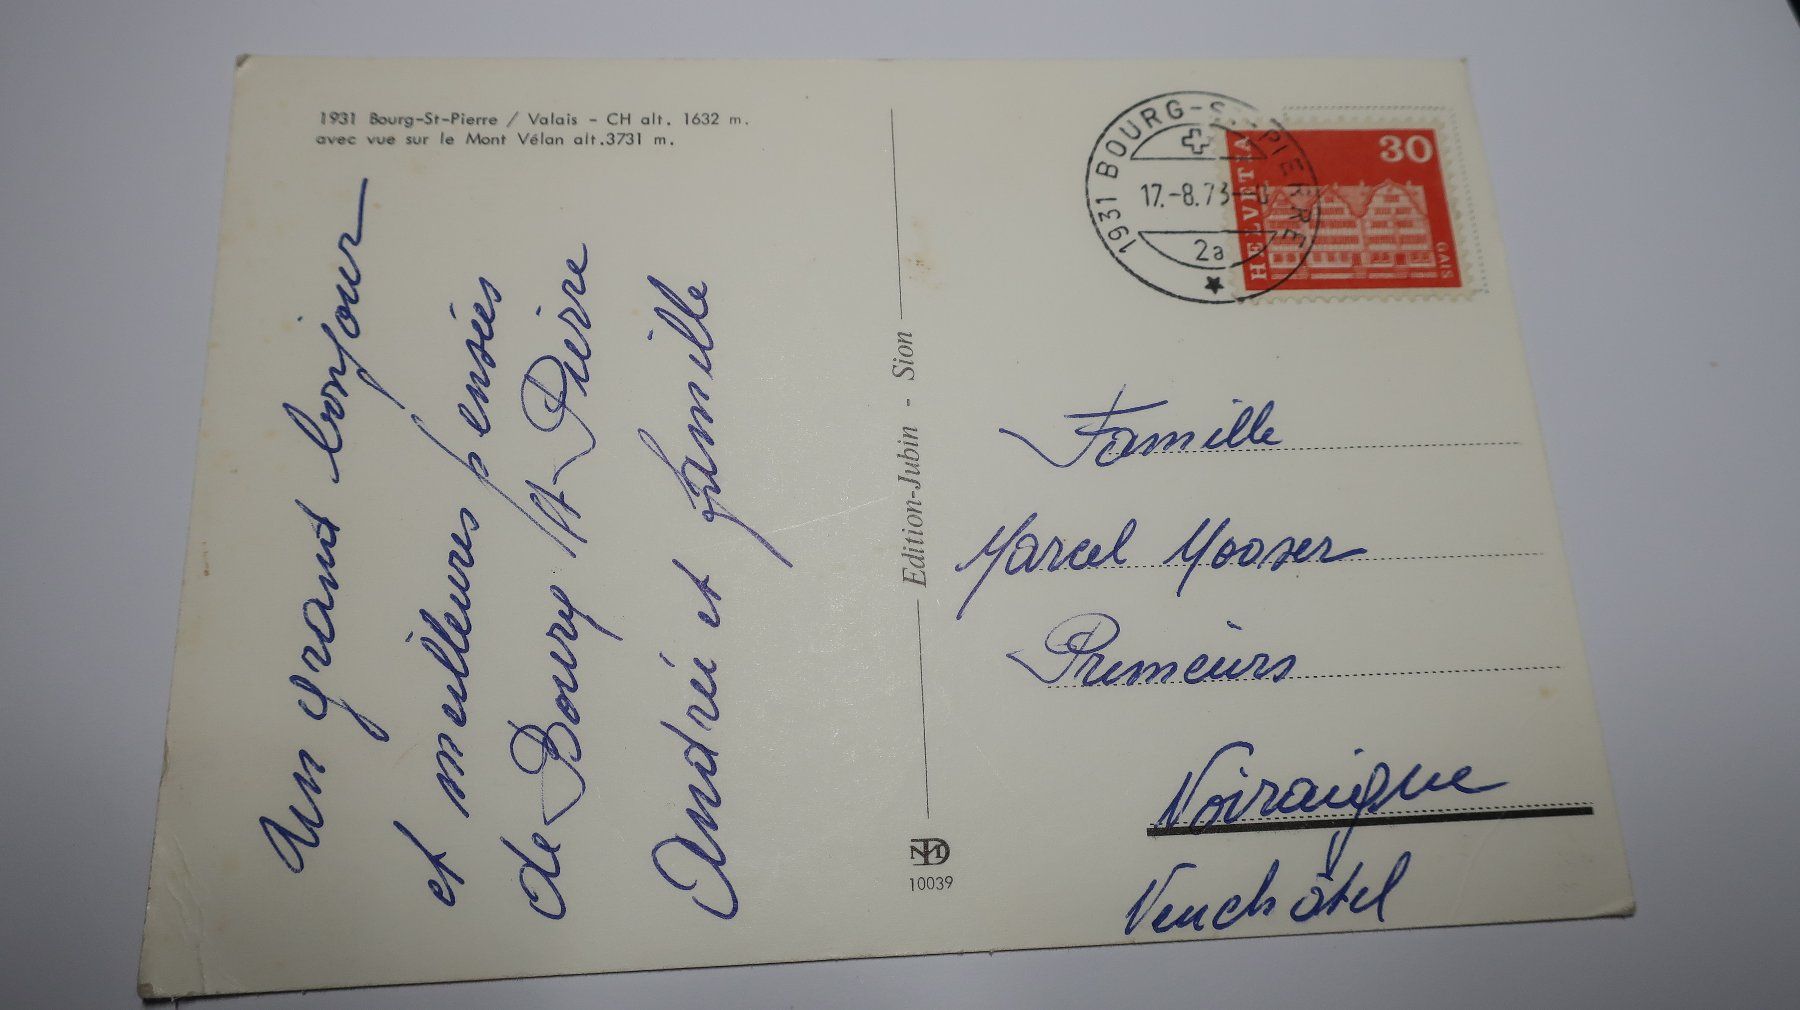 1931 Bourg-St-Pierre / Valais - CH alt. 1632 m.
avec vue sur le Mont Vélan alt.3731 m.
Un grand bonjour
et meilleures pensées
de Bourg St-Pierre
Andrée et famille
Edition-Jubin - Sion
10039
1931 BOURG-ST-PIERRE
17.-8.73
2a
HELVETIA
30
GAIS
Famille
Marcel Mooser
Primeurs
Noiraigue
Neuchâtel